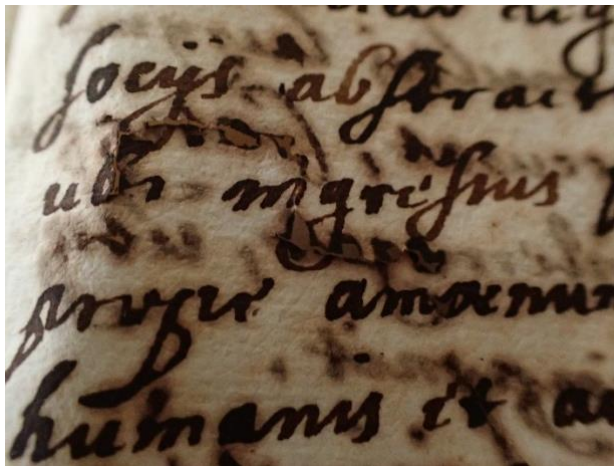 socijs abstract
ubi ingressus
prope amoenu
humanis et a